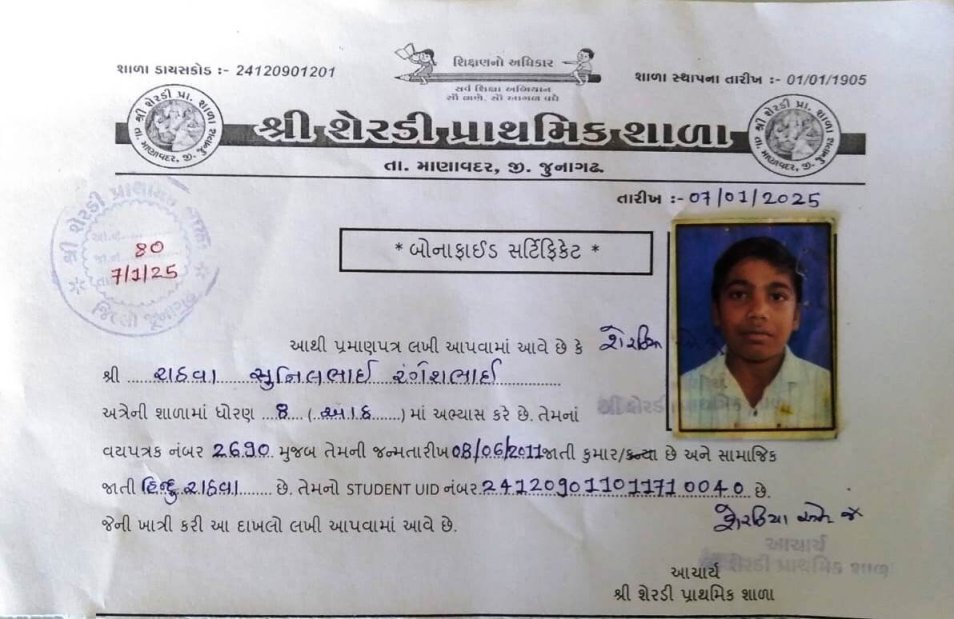 શાળા ડાયસકોડ :- 24120901201
શિક્ષણનો અધિકાર
સર્વ શિક્ષા અભિયાન
સૌ ભણે, સૌ આગળ વધે
શાળા સ્થાપના તારીખ :- 01/01/1905
શ્રી શેરડી પ્રા. શાળા
તા. માણાવદર, જી. જુનાગઢ
શ્રી શેરડી પ્રાથમિક શાળા
શ્રી શેરડી પ્રા. શાળા
તા. માણાવદર, જી. જુનાગઢ
તા. માણાવદર, જી. જુનાગઢ.
તારીખ :- 07/01/2025
શ્રી શેરડી પ્રાથમિક શાળા
80
7/1/25
જિલ્લો જૂનાગઢ
* બોનાફાઈડ સર્ટિફિકેટ *
આથી પ્રમાણપત્ર લખી આપવામાં આવે છે કે
શ્રી રાઠવા સુનિલભાઈ રંગેશભાઈ
અત્રેની શાળામાં ધોરણ ...8... (..આઠ......) માં અભ્યાસ કરે છે. તેમનાં
વયપત્રક નંબર 2690. મુજબ તેમની જન્મતારીખ 08/06/2011 જાતી કુમાર/કન્યા છે અને સામાજિક
જાતી હિન્દુ રાઠવા....... છે. તેમનો STUDENT UID નંબર 241209011011710040 છે.
જેની ખાત્રી કરી આ દાખલો લખી આપવામાં આવે છે.
આચાર્ય
શ્રી શેરડી પ્રાથમિક શાળા
આચાર્ય
શ્રી શેરડી પ્રાથમિક શાળા